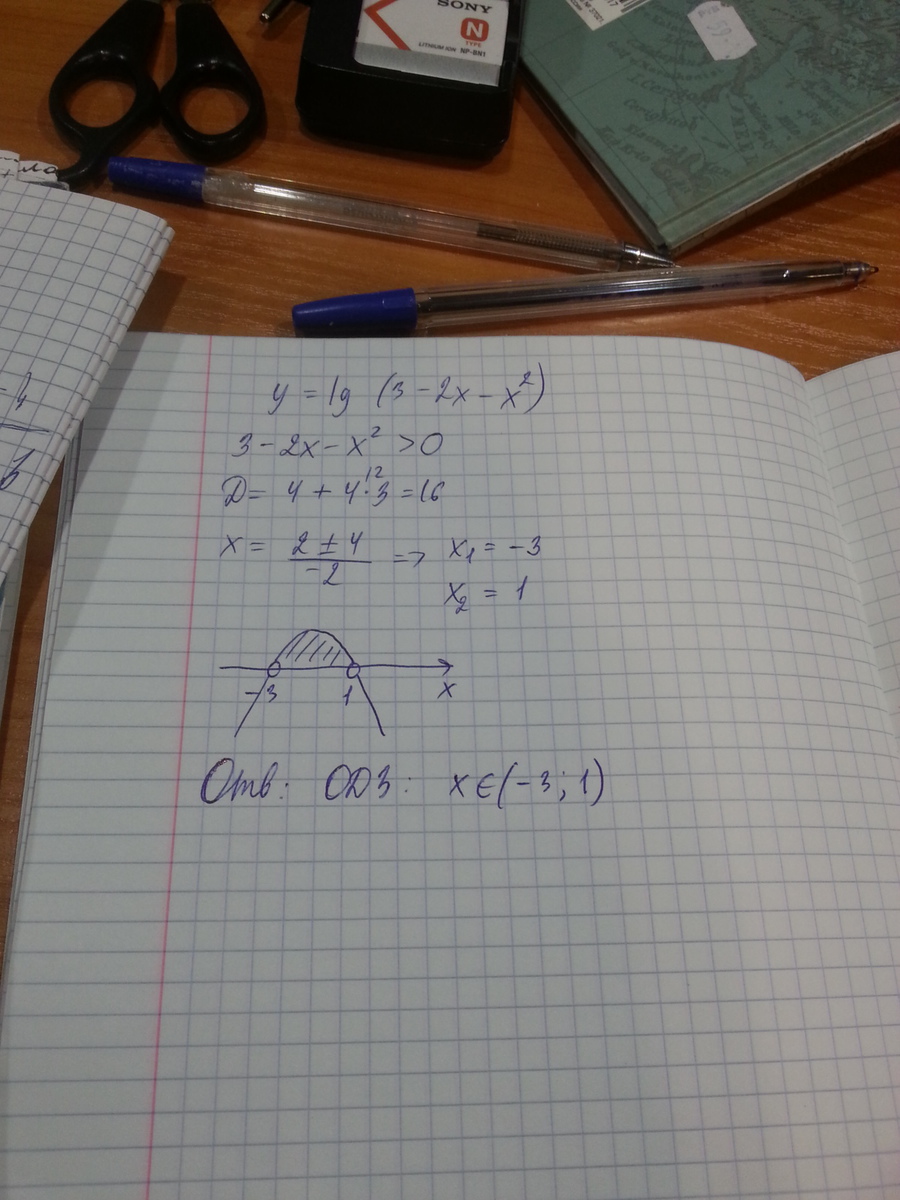 SONY
N
TYPE
LITHIUM ION NP-BN1
y = lg (3 - 2x - x²)
3 - 2x - x² > 0
D = 4 + 4·3 = 16
12
x = (2 ± 4)/(-2) => x₁ = -3
x₂ = 1
-3 1 x
Отв: ОДЗ: x ∈ (-3; 1)